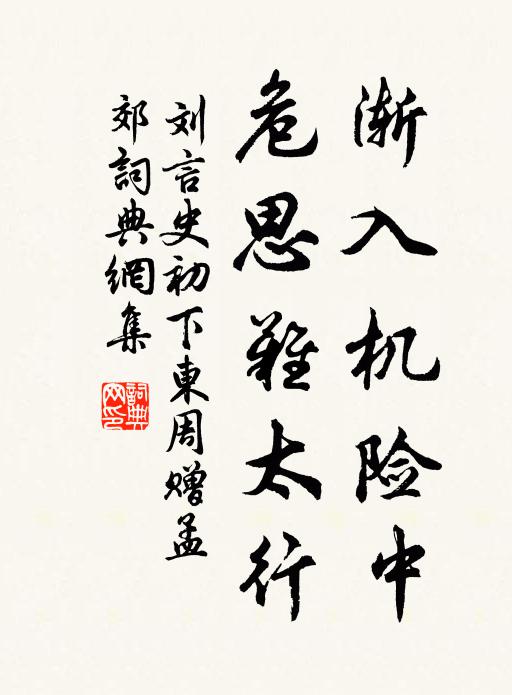 渐入机险中
危思难太行
刘言史初下東周赠孟
郊詞典網集
詞典
网印